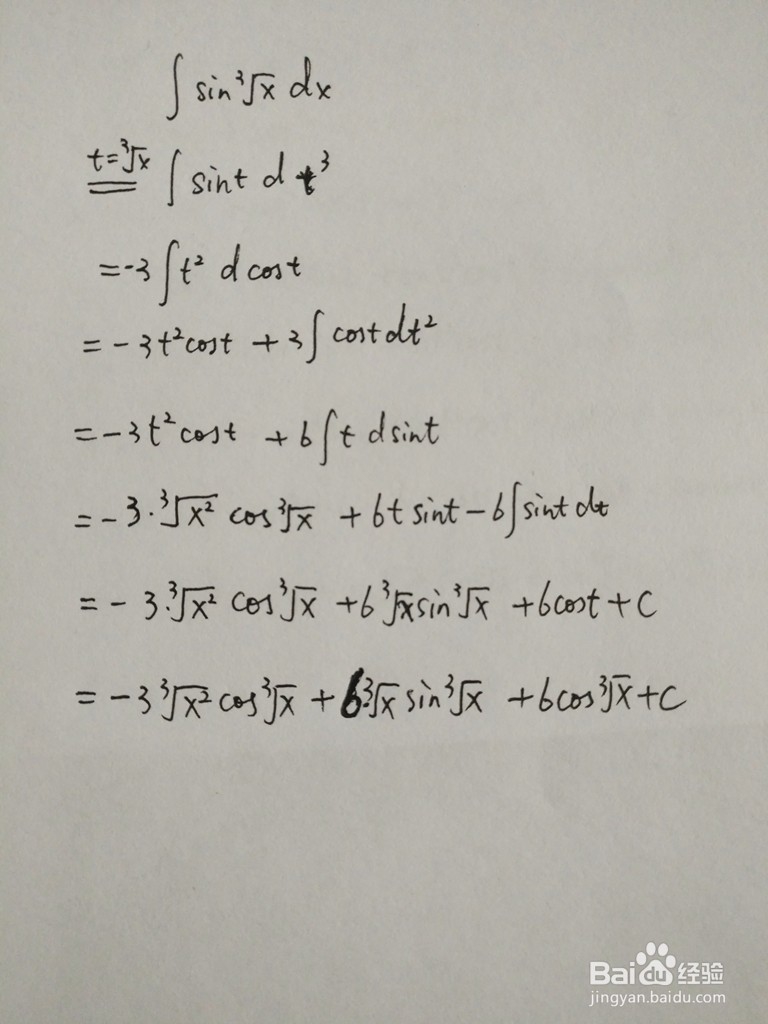 ∫ sin ³√x dx
t=³√x ∫ sint d t³
=-3 ∫ t² d cost
= - 3t²cost + 3 ∫ cost dt²
= -3t²cost + 6 ∫ t d sint
= - 3·³√x² cos ³√x + 6t sint - 6 ∫ sint dt
= - 3·³√x² cos ³√x + 6 ³√x sin ³√x + 6cost + C
= - 3 ³√x² cos ³√x + 6·³√x sin ³√x + 6cos ³√x + C
Baidu经验
jingyan.baidu.com